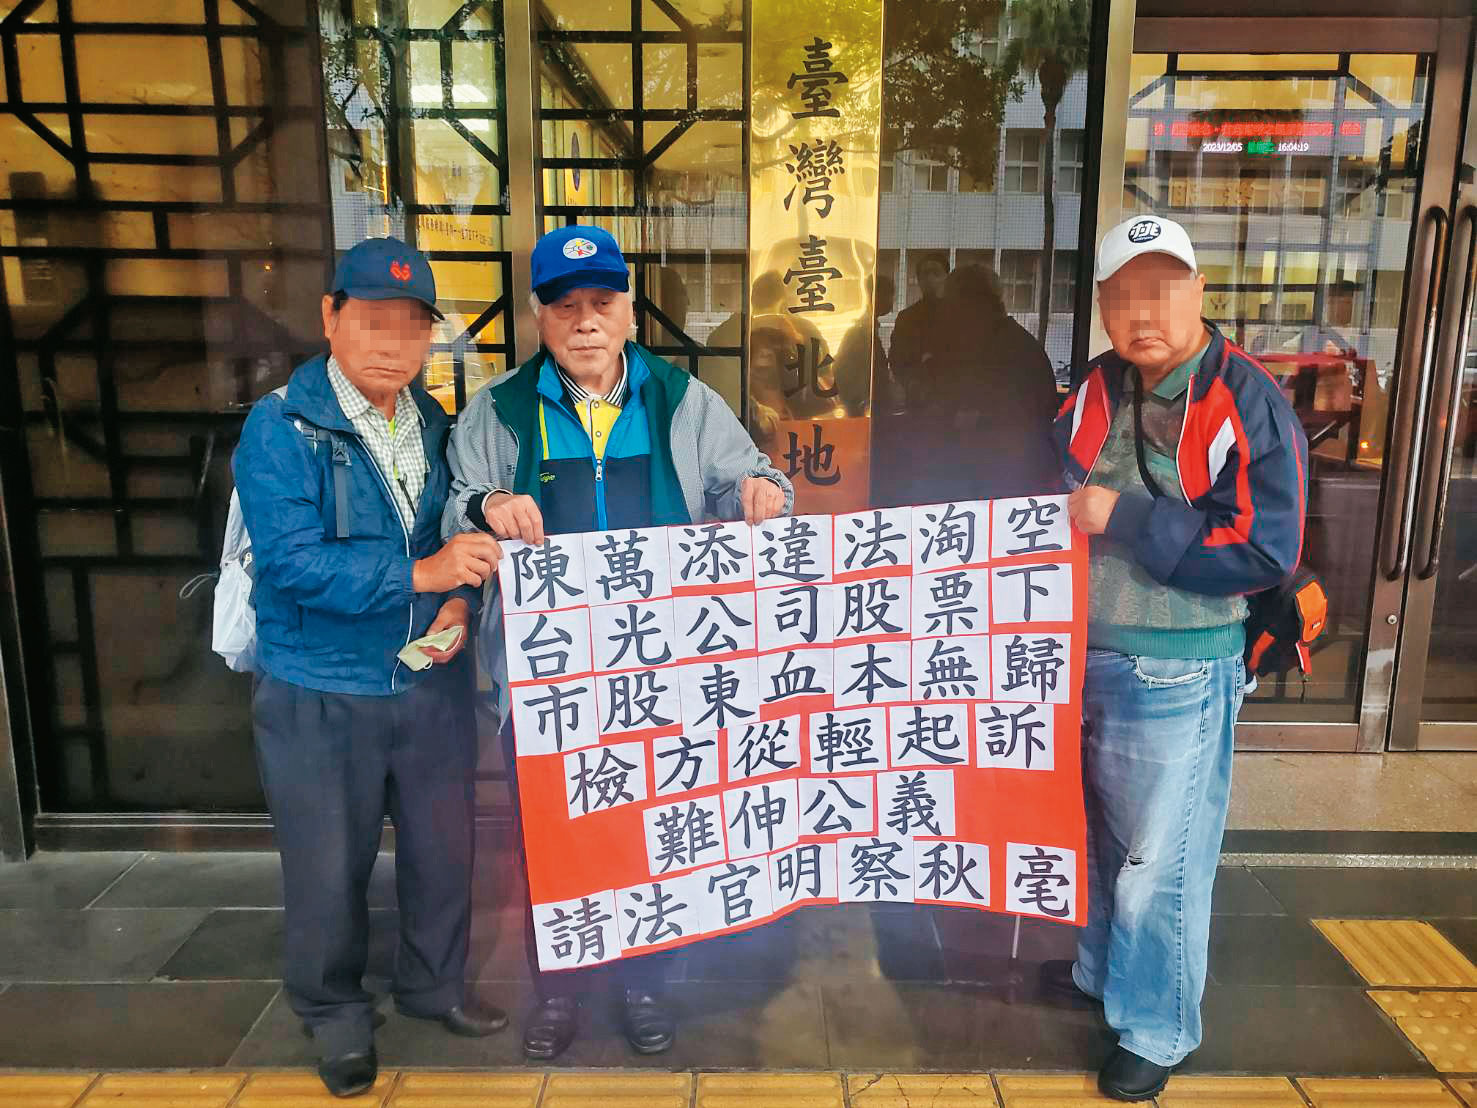 臺灣臺北地
2023/12/05 星期二 16:04:19
桃
陳萬添違法淘空
台光公司股票下
市股東血本無歸
檢方從輕起訴
難伸公義
請法官明察秋毫